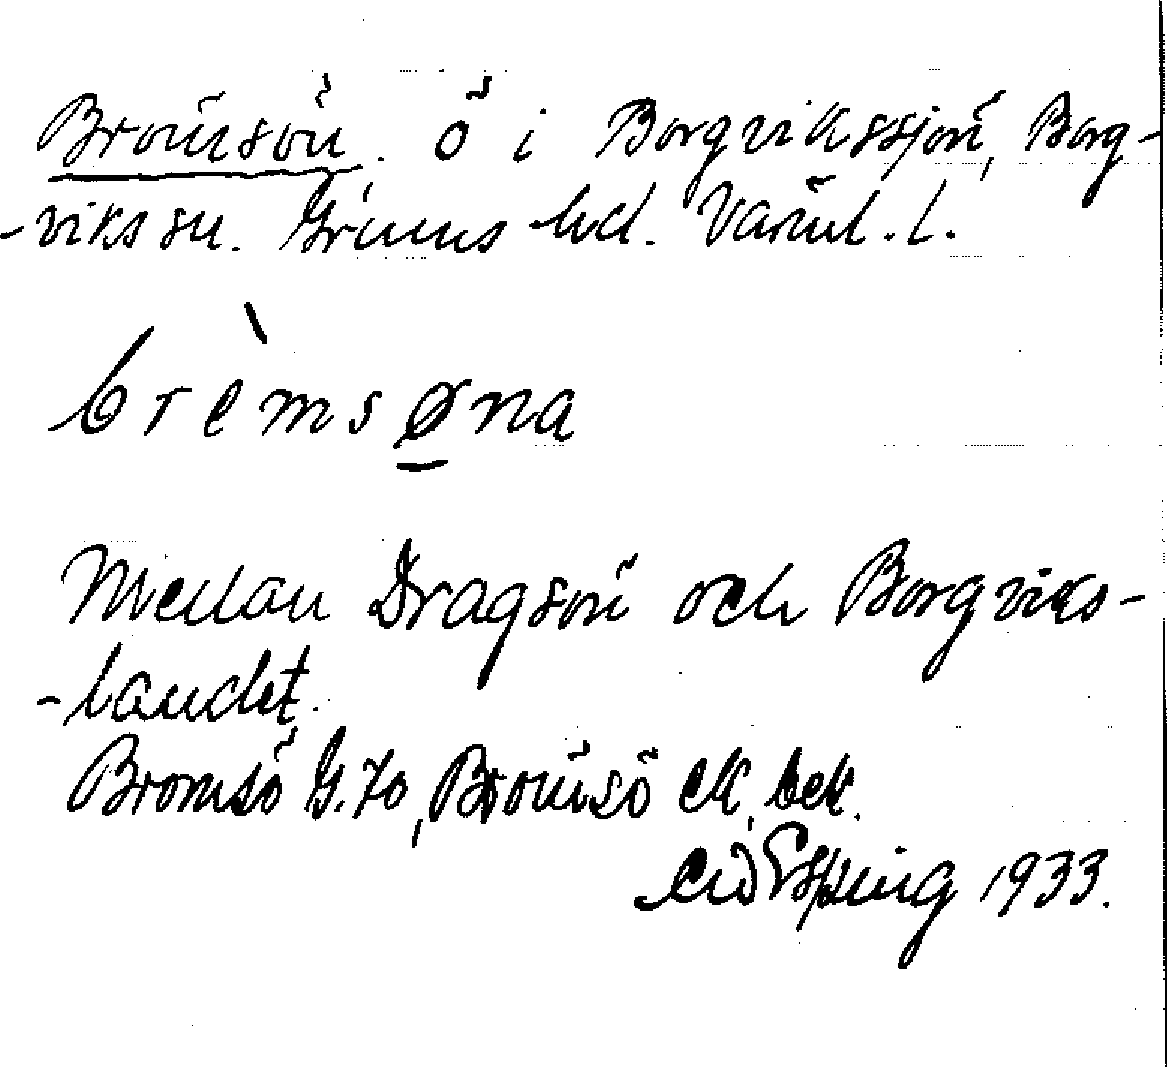 Brömsön. ö i Borgvikssjön, Borg-
-viks sn. Grums hd. Värml. l.
brèmsøna
Mellan Dragsön och Borgviks-
-landet.
Bromsö G.70, Brömsö ek, bek.
1933.